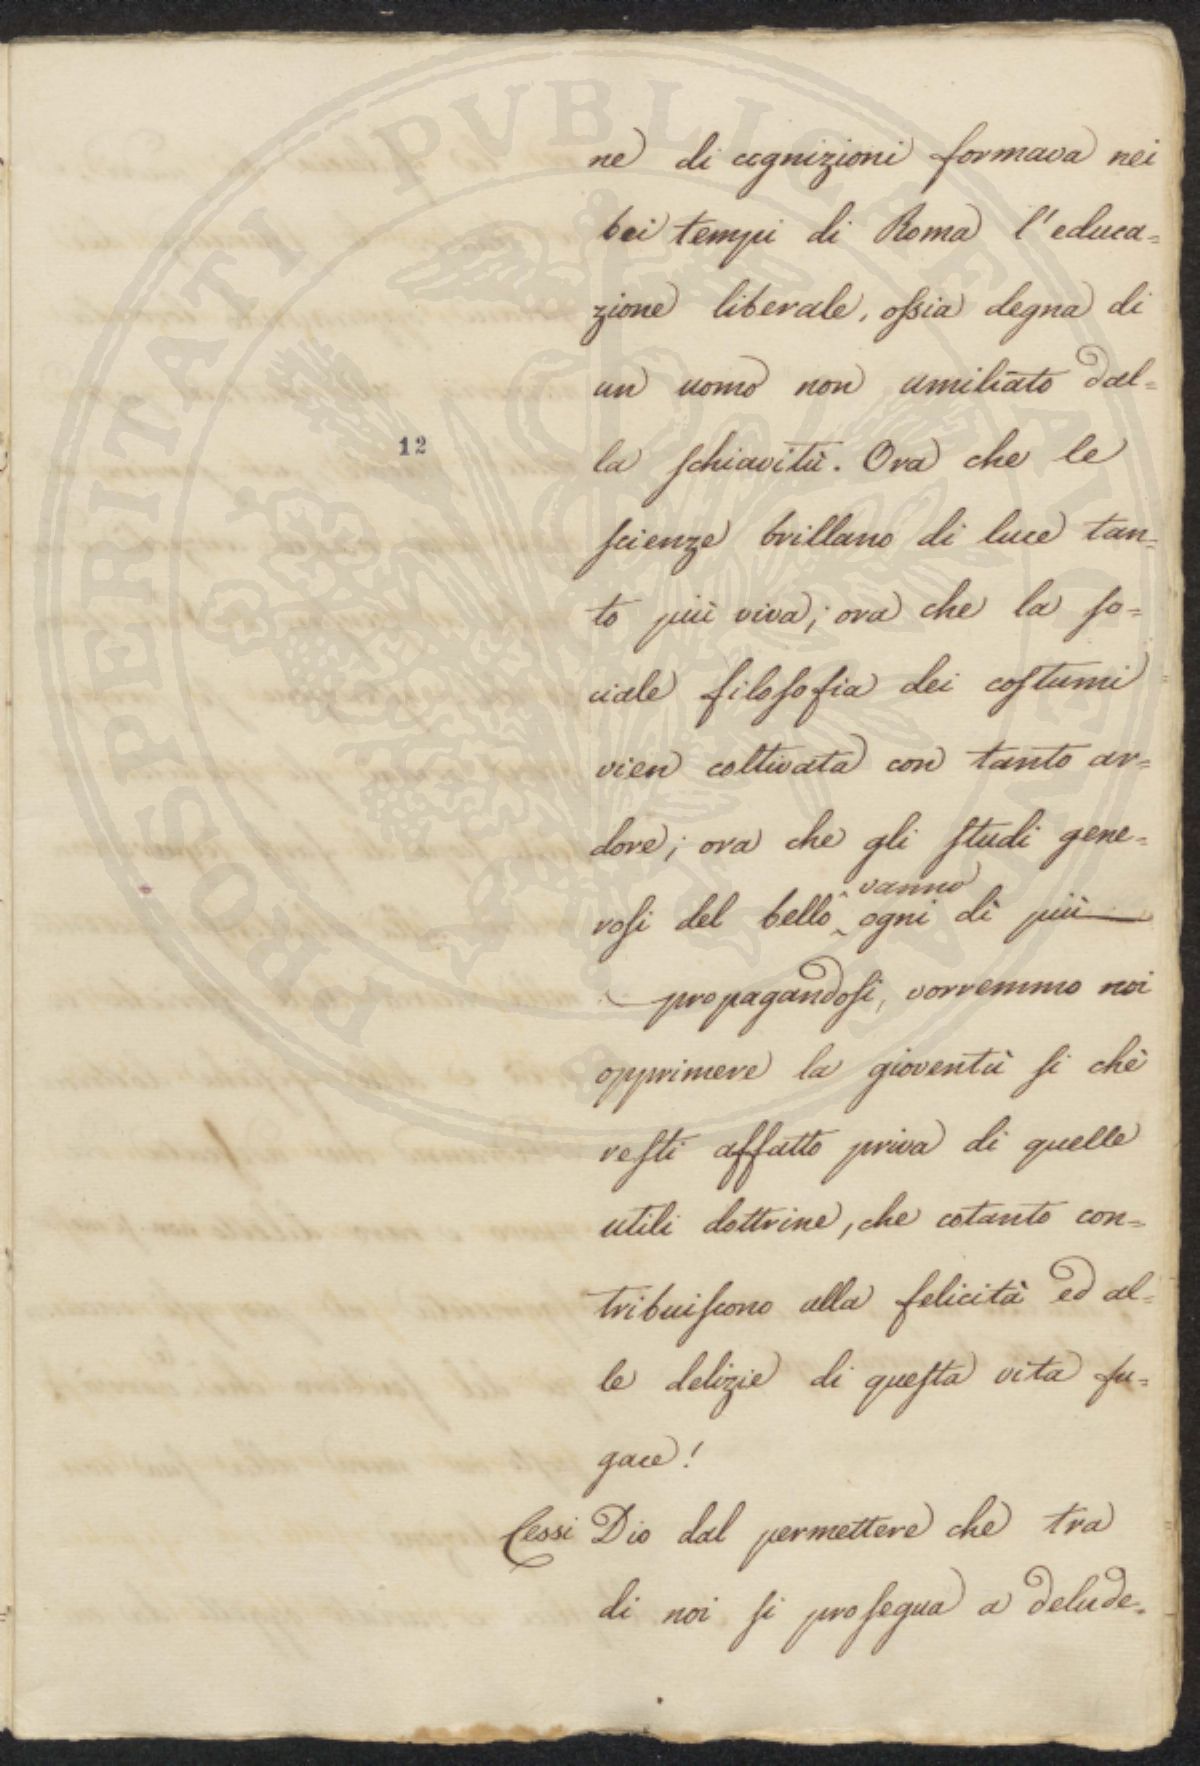 ne di cognizioni formava nei
bei tempi di Roma l'educa=
zione liberale, ossia degna di
un uomo non umiliato dal=
12
la schiavitù. Ora che le
scienze brillano di luce tan=
to più viva; ora che la so=
ciale filosofia dei costumi
vien coltivata con tanto ar=
dore; ora che gli studi gene=
vanno
rosi del bello ogni dì più
propagandosi, vorremmo noi
opprimere la gioventù si chè
resti affatto priva di quelle
utili dottrine, che cotanto con=
tribuiscono alla felicità ed al=
le delizie di questa vita fu=
gace!
Cessi Dio dal permettere che tra
di noi si prosegua a delude=
PROSPERITATI PVBLICAE AVGENDAE